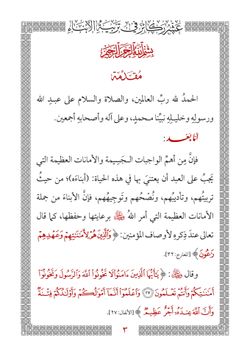 عشر ركائز في تربية الأبناء
بِسْمِ اللَّهِ الرَّحْمَنِ الرَّحِيمِ
مُقدِّمة:
الحمدُ لله ربِّ العالمين، والصلاة والسلام على عبدِ الله
ورسولِه وخليلِه نبيِّنا محمدٍ، وعلى آله وأصحابِه أجمعين.
أمَّا بَعــد:
فإنَّ مِن أهمِّ الواجبات الجَسِيمة والأمانات العظيمة التي
يَجبُ على العبد أن يعتنيَ بها في هذه الحياة: (أبناءَه)؛ من حيثُ
تربيتُهم، وتأديبُهم، ونُصْحُهم وتَوجِيهُهم، فإنَّ الأبناءَ من جملة
الأمانات العظيمة التي أمر اللهُ ﷻ برعايتها وحفظها، كما قال
تعالى عند ذِكره لأوصاف المؤمنين: ﴿وَالَّذِينَ هُمْ لِأَمَانَاتِهِمْ وَعَهْدِهِمْ
رَاعُونَ﴾ [المعارج: ٣٢].
وقال ﷻ: ﴿يَا أَيُّهَا الَّذِينَ آمَنُوا لَا تَخُونُوا اللَّهَ وَالرَّسُولَ وَتَخُونُوا
أَمَانَاتِكُمْ وَأَنتُمْ تَعْلَمُونَ ﴿٢٧﴾ وَاعْلَمُوا أَنَّمَا أَمْوَالُكُمْ وَأَوْلَادُكُمْ فِتْنَةٌ
وَأَنَّ اللَّهَ عِندَهُ أَجْرٌ عَظِيمٌ﴾ [الأنفال: ٢٧].
٣